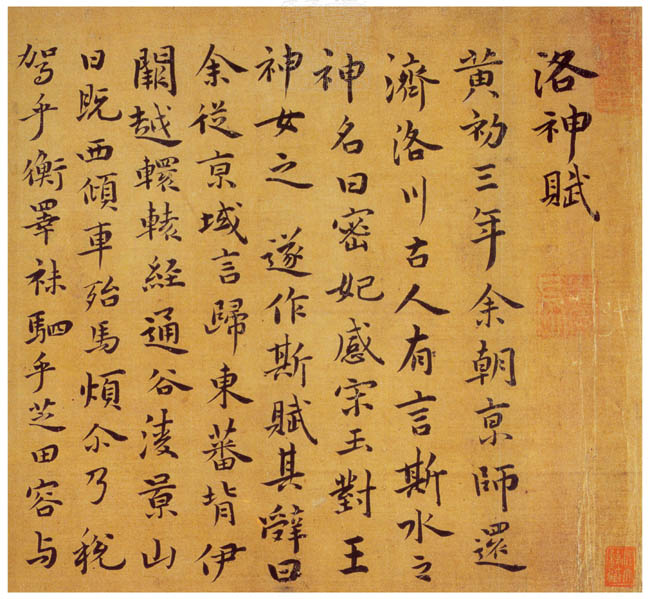 洛神賦
黄初三年余朝京師還
濟洛川古人有言斯水之
神名曰密妃感宋玉對王
神女之 遂作斯賦其辭曰
余從京域言歸東蕃背伊
闕越轘轅經通谷淩景山
日既西傾車殆馬煩尒乃税
駕乎衡睪秣駟乎芝田容与